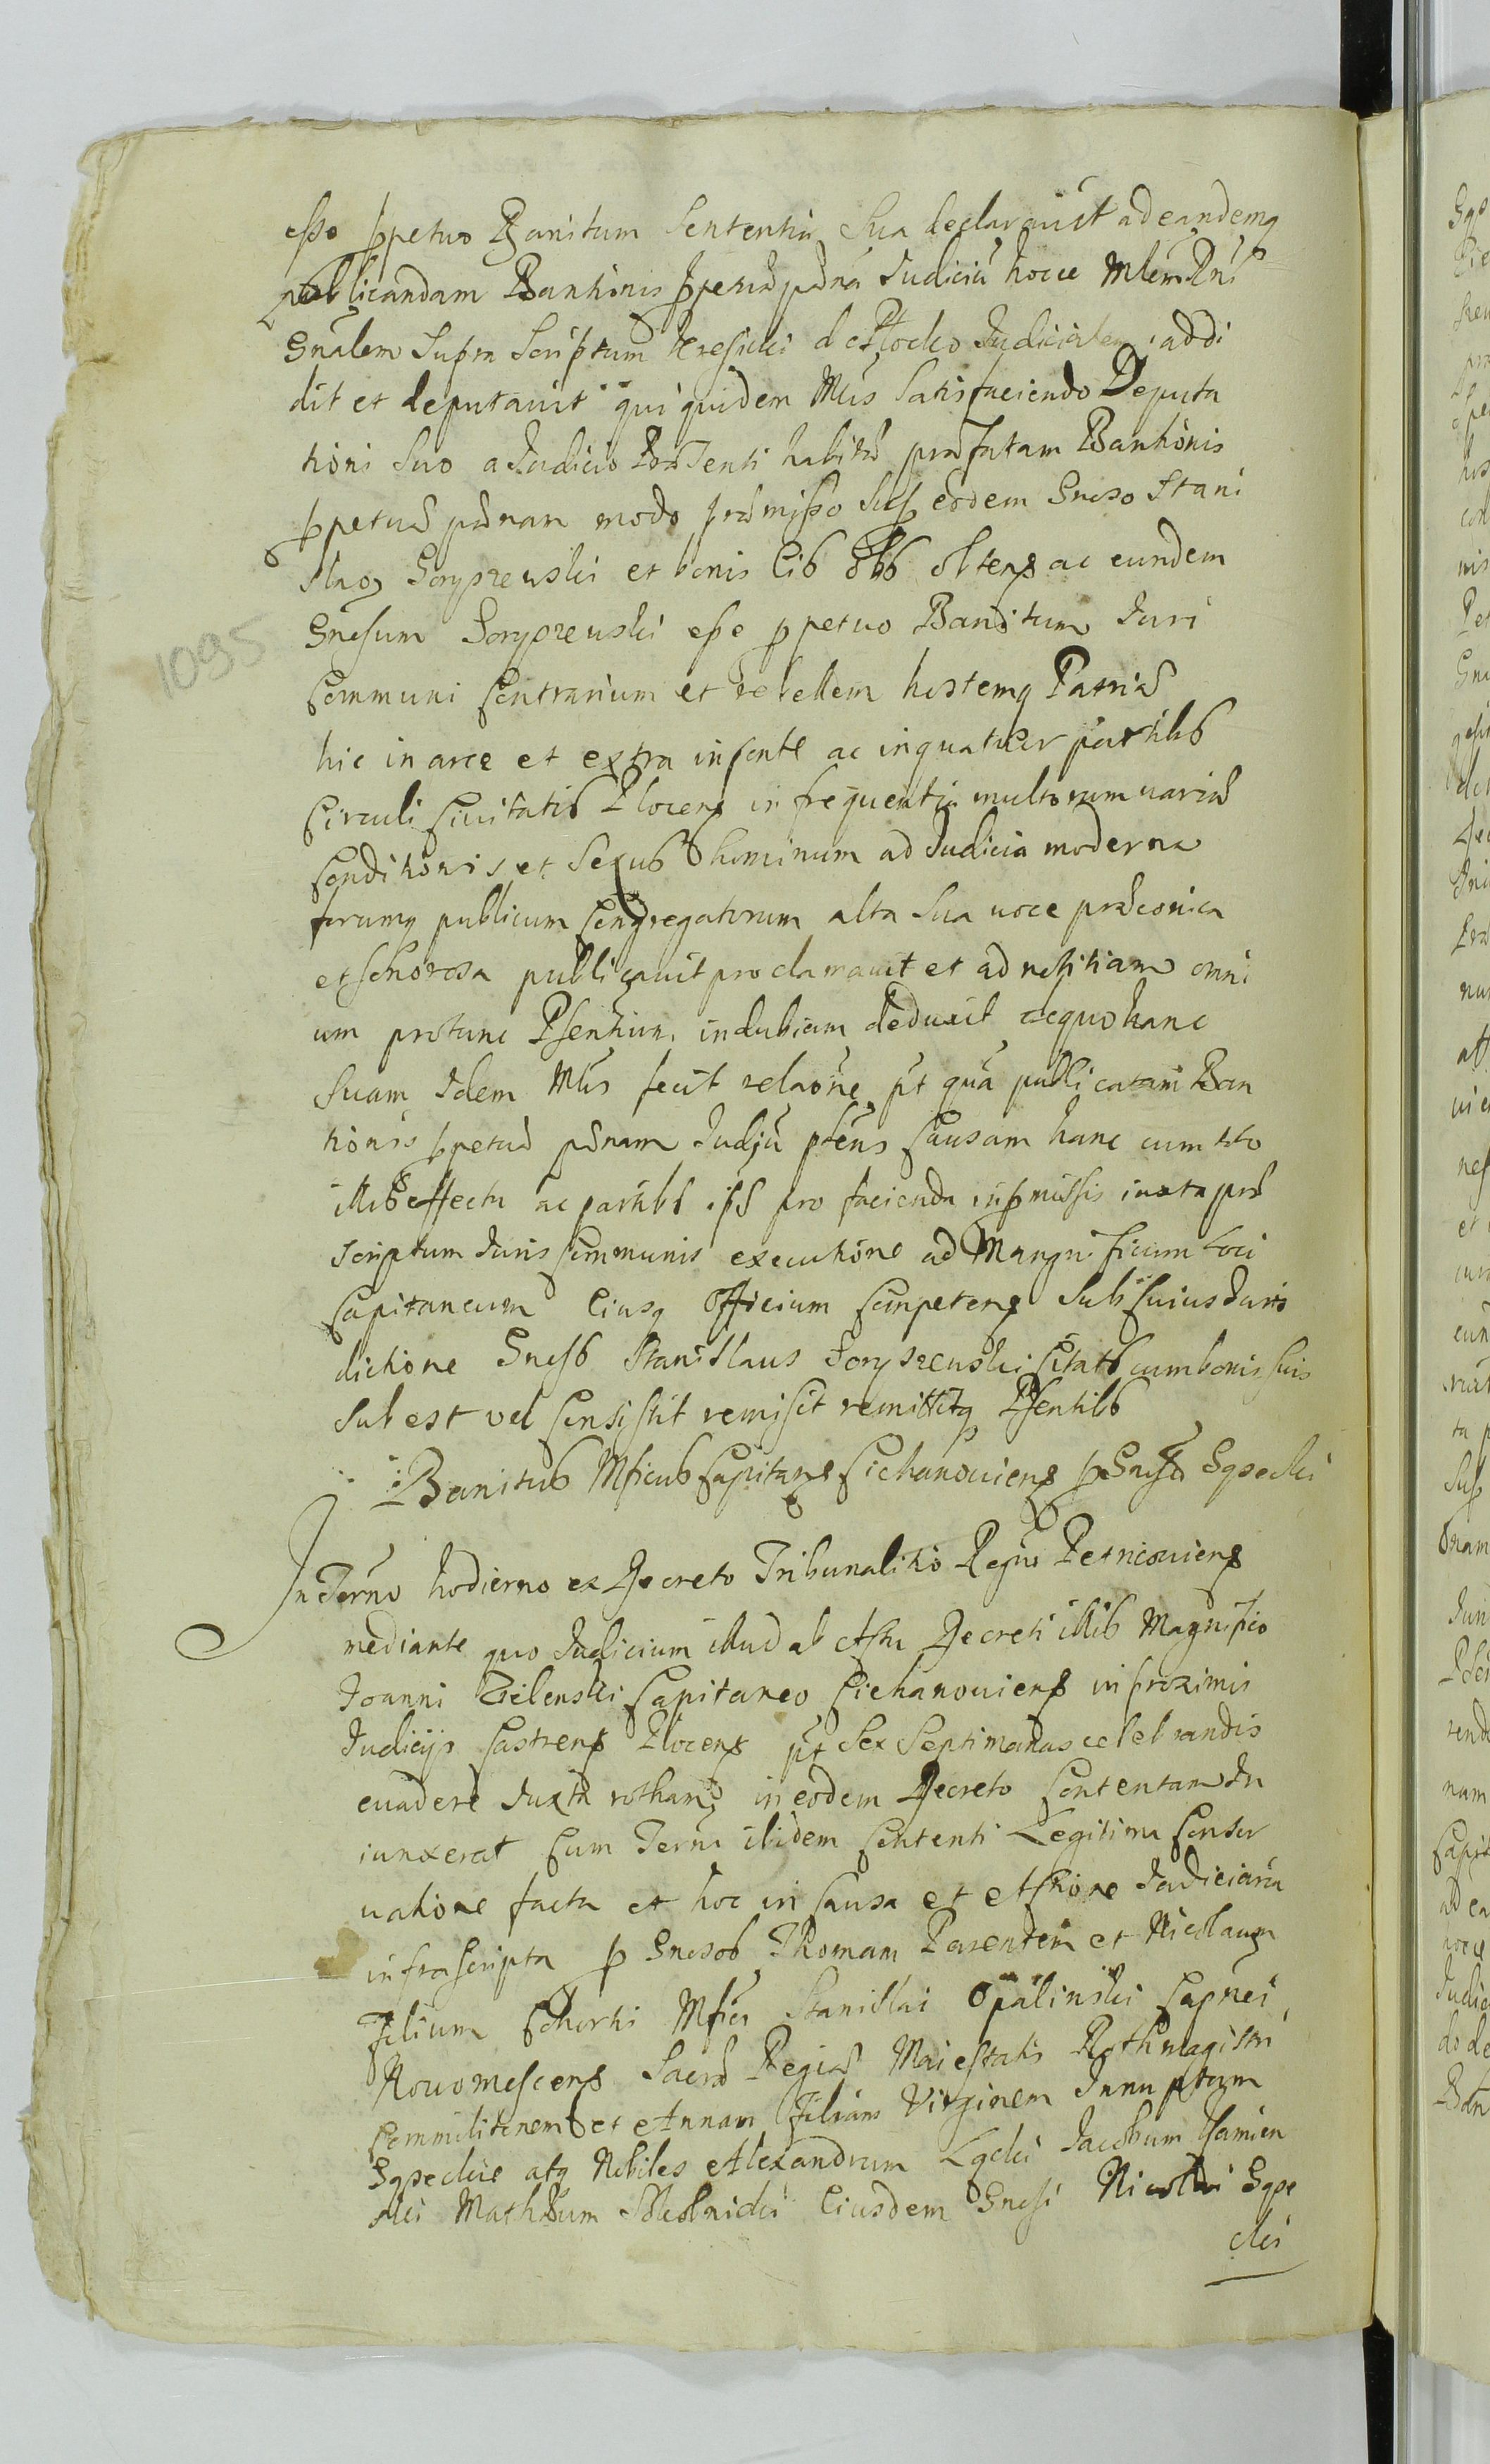 esse ppetuo Banitum Sententia Sua declarauit ad eandemq
publicandam Banitionis ppetuæ pænā Judiciū hocce Mlem Rni
Gnalem Supra Scriptum Judicialem addi
dit et deputauit qui quidem Mlis Satisfaciendo Deputa
tioni Suo a Judicio Præsenti habitæ præfatam Banitionis
ppetuæ pænam modo præmisso Sup eodem Gnoso Stani
slao Goryszewski et bonis eib obb ac eundem
Gnosum Goryszewski esse ppetuo Banitum Juri
Communi Contrarium et rebellem hostemq Patriæ
hic in arce et extra in fonte ac in quatuor partib
Circuli Ciuitatis Plocens in frequentia multorum uariæ
Conditionis et Sexus hominum ad Judicia moderna
forumq publicum Congregatorum alta Sua uoce præconica
et Sonorosa publicauit proclamauit et ad notitiam omni
um protunc Psentium indubiam deduxit de quo hanc
Suam Idem Mlis fecit relaōne pt quā publicatam Ban
itionis ppetuæ pænam Judju ptens Causam hanc cum toto
illius effectu ac partibs ips pro facienda in pmissis iuxta præ
Scriptum Juris Communis executione ad Mangnificum Loci
Capitaneum Eiusq Officium Conpetens Sub Cuius Juris
dictione Gnosb Stanislaus Goryszewski Citatb cum bonis suis
Sub est vel Consistit remisit remittitq Psentibb
Banitub Mficub Capitans Ciehanouiens p Gnosd Gqsecki
In Termo hodierno ex Decreto Tribunalitio Regni Petricouiens
mediante quo Judicium illud ab Actu Decreti illib Magnifico
Joanni Zielenski Capitaneo Ciehanouiens in proximis
Judicijs Castrens Plocens pt Sex Septimanas celebrandis
euadere Juxta rotham in eodem Decreto Contentam In
iunxerat Cum Termi ibidem Contenti Legitima Conser
uatione facta et hoc in Causa et Actione Judiciaria
infrascripta p Gnosob Thomam Parentem et Nicolaum
Filium Cohortis Mfici Stanislai Opalinski Capnei
Nouomescens Sacræ Regiæ Maiestatis Rothmagistri
Commilitonem et Annam Filiam Virginem Innuptam
Gqseckie atq Nobiles Alexandrum Lqcki Jacobum Kamien
ski Mathæum Eiusdem Gnosi Nicolai Gqse
cki
1095